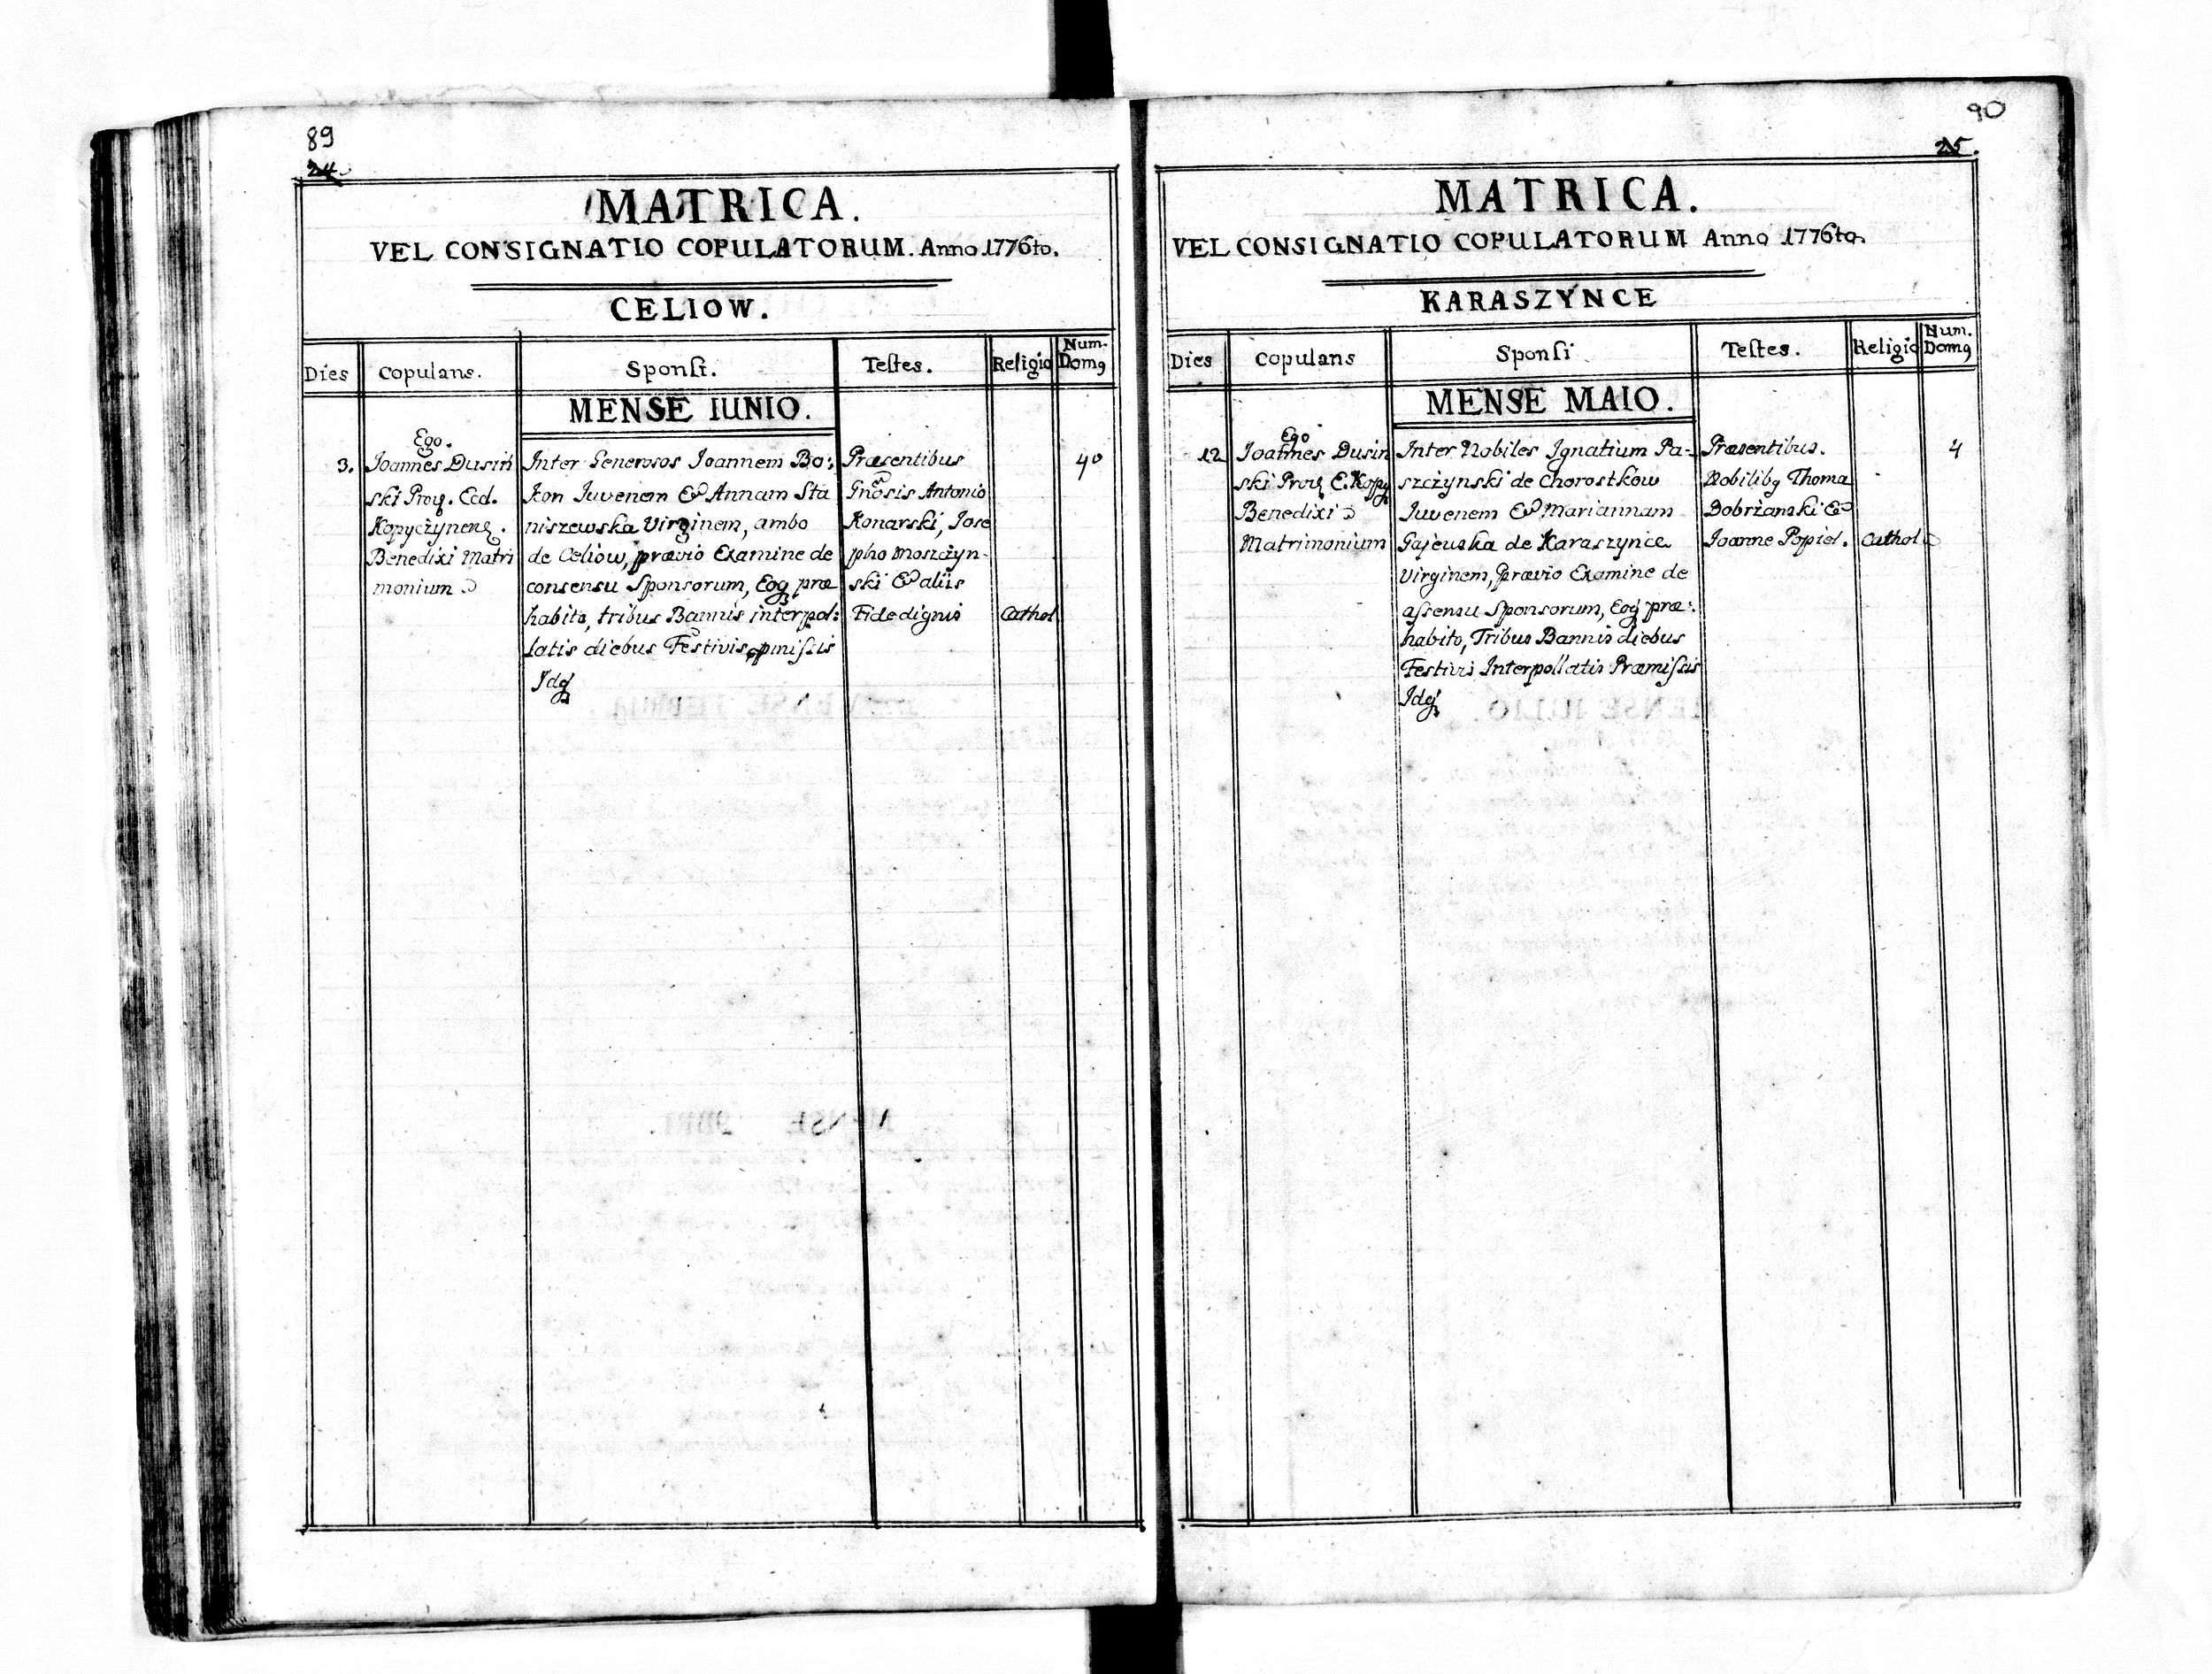 89
24.
MATRICA.
VEL CONSIGNATIO COPULATORUM. Anno 1776to.
CELIOW.
Dies Copulans. Sponsi. Testes. Religio Num. Domg
MENSE IUNIO.
3.
Ego.
Joannes Dusiń
ski Proq. Eccl.
Kopyczynenq.
Benedixi Matri
monium
Inter Generosos Joannem Bo:
kon Juvenem & Annam Sta
niszewska Virginem, ambo
de Celiow, prævio Examine de
consensu Sponsorum, Eoq præ
habito, tribus Bannis interpol:
latis diebus Festivis, pmissis
Idq
Præsentibus
Gnosis Antonio
Konarski, Jose
pho Moszczyn-
ski & aliis
Fide dignis
Cathol
40
90
25.
MATRICA.
VEL CONSIGNATIO COPULATORUM Anno 1776to.
KARASZYNCE
Dies Copulans Sponsi Testes. Religio Num. Domg
MENSE MAIO.
12
Ego
Joannes Dusin
ski Proq E. Kopy
Benedixi
Matrimonium
Inter Nobiles Ignatium Pa-
szczynski de Chorostkow
Juvenem & Mariannam
Gajewska de Karaszynce
Virginem, Prævio Examine de
assensu Sponsorum, Eoq præ:
habito, Tribus Bannis diebus
Festivis Interpollatis Præmissis
Idq
Præsentibus.
Nobilibg Thoma
Dobrzanski &
Joanne Popiel.
Cathol
4